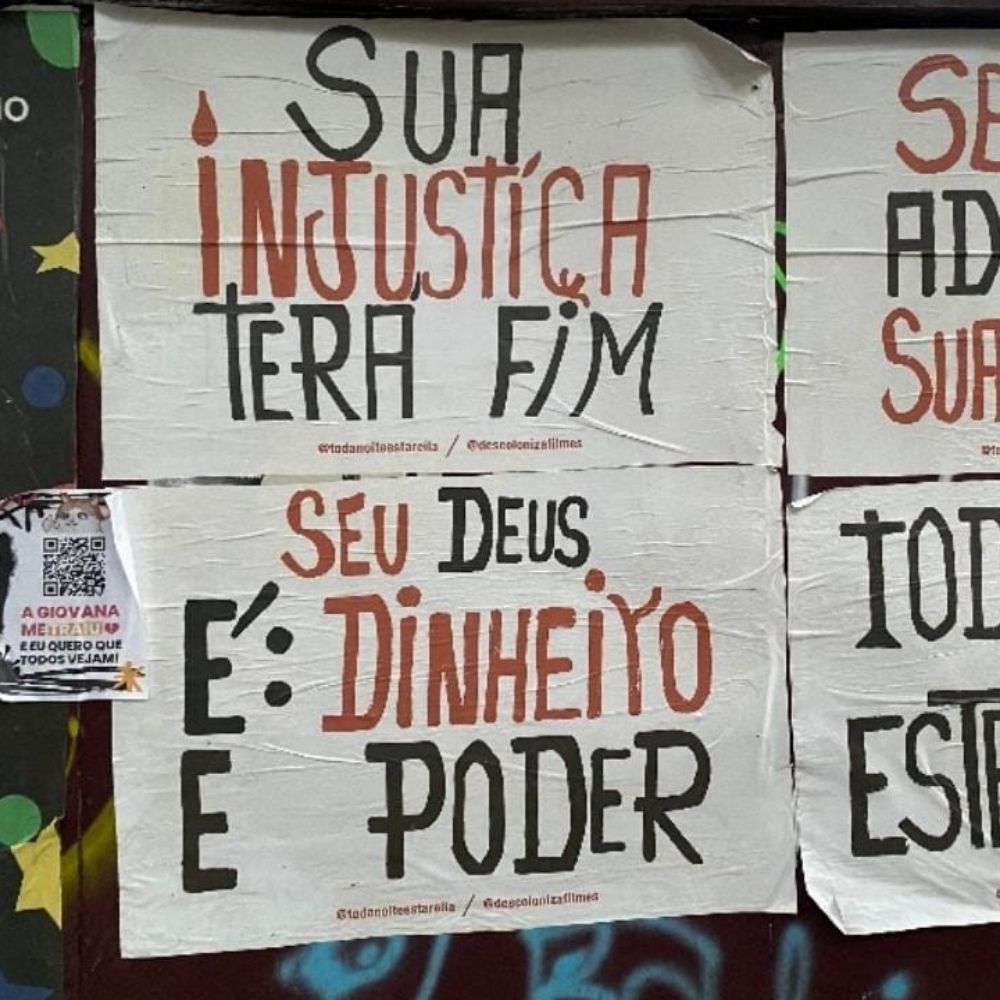 IO
SUA
INJUSTIÇA
TERÁ FIM
@todanoiteestareila / @descolonizafilmes
SEU DEUS
É: DINHEIRO
E PODER
@todanoiteestareila / @descolonizafilmes
A GIOVANA
ME TRAIU
E EU QUERO QUE
TODOS VEJAM!
SE
AD
SUA
@to
TOD
ESTE